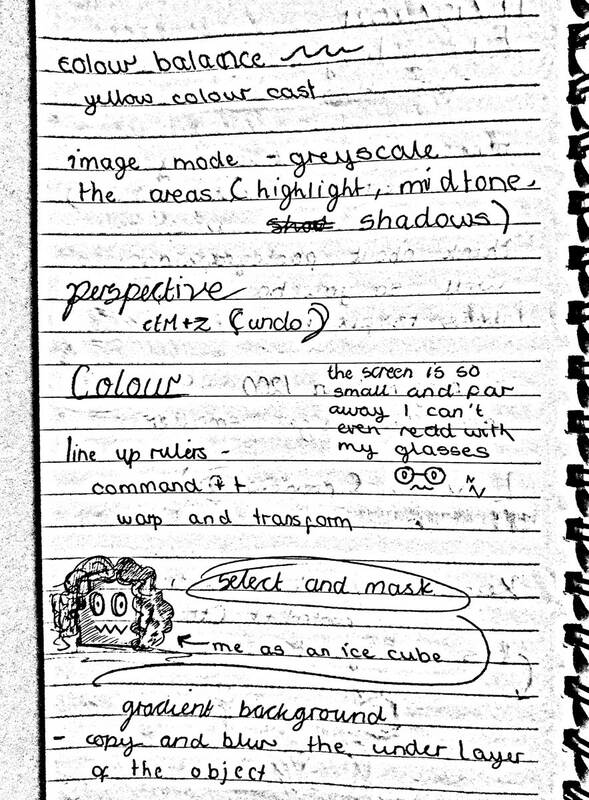 colour balance
yellow colour cast
image mode - greyscale
the areas (highlight, midtone,
shadows)
perspective
ctrl+z (undo)
Colour
the screen is so
small and far
away I can't
even read with
my glasses
line up rulers -
command + t
warp and transform
select and mask
me as an ice cube
gradient background!
- copy and blur the under layer
of the object